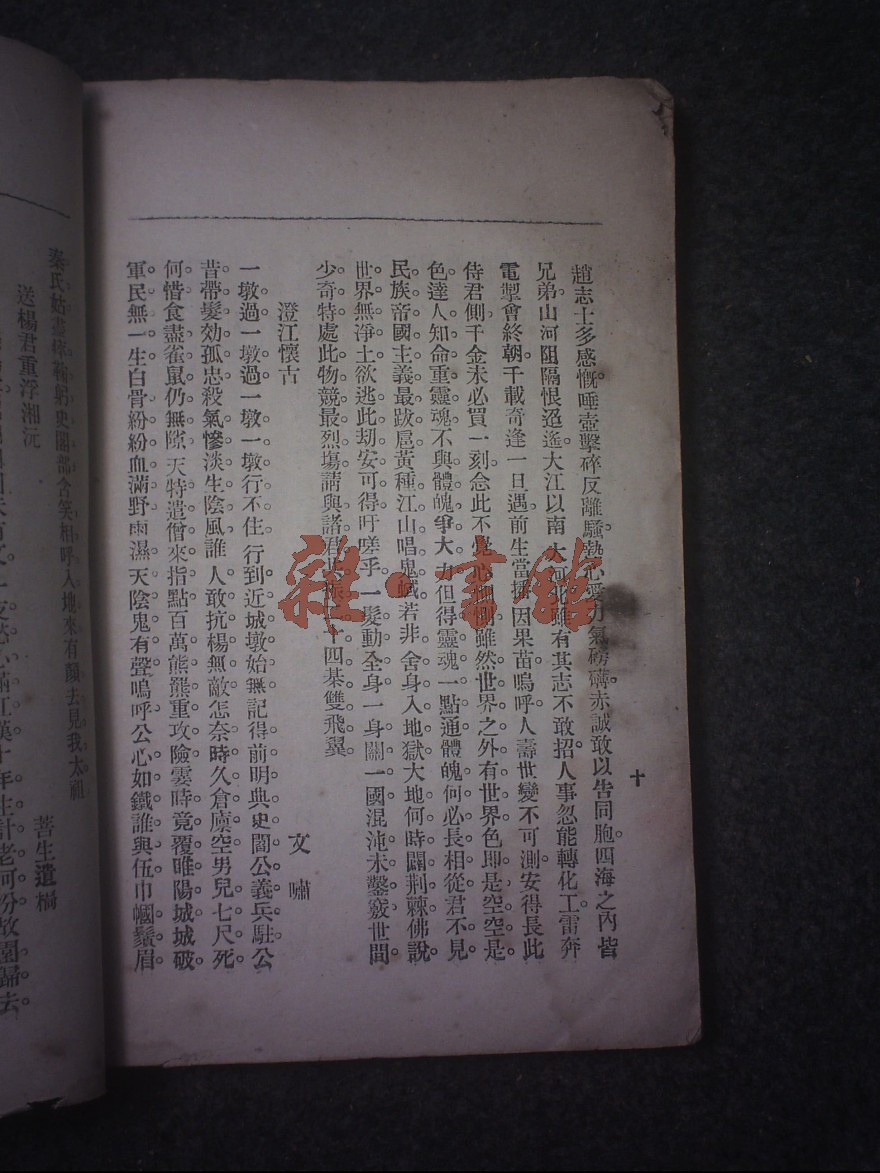 十
趙志士多感慨。唾壺擊碎反離騷。熱心愛力氣磅礴。赤誠敢以告同胞。四海之內皆
兄弟。山河阻隔恨迢遙。大江以南大河北。雖有其志不敢招。人事忽能轉化工。雷奔
電掣會終朝。千載奇逢一旦遇。前生當種因果苗。嗚呼人壽世變不可測。安得長此
侍君側。千金未必買一刻。念此不覺心惻惻。雖然世界之外有世界。色即是空空是
色。達人知命重靈魂。不與體魄爭大力。但得靈魂一點通。體魄何必長相從。君不見
民族帝國主義最跋扈。黃種江山唱鬼蜮。若非舍身入地獄。大地何時闢荆棘。佛說
世界無淨土。欲逃此刧安可得。吁嗟乎。一髮動全身。一身關一國。混沌未鑿竅。世間
少奇特。處此物競最烈塲。請與諸君十四基雙飛翼
澄江懷古
文嘯
一墩過。一墩過。一墩一墩行不住。行到近城墩始無。記得前明典史閻公義兵駐。公
昔帶髮効孤忠。殺氣慘淡生陰風。誰人敢抗楊無敵。怎奈時久倉廩空。男兒七尺死
何惜。食盡雀鼠仍無隙。天特遣僧來指點。百萬熊羆重攻險。霎時竟覆睢陽城。城破
軍民無一生。白骨紛紛血滿野。雨濕天陰鬼有聲。嗚呼公心如鐵誰與伍。巾幗鬚眉
秦氏姑。史閣部。含笑相呼入地來。有顏去見我太祖
送楊君重浮湘沅
菩生遺稿
江漢十年生計老。河汾故園歸去。
雜·書館